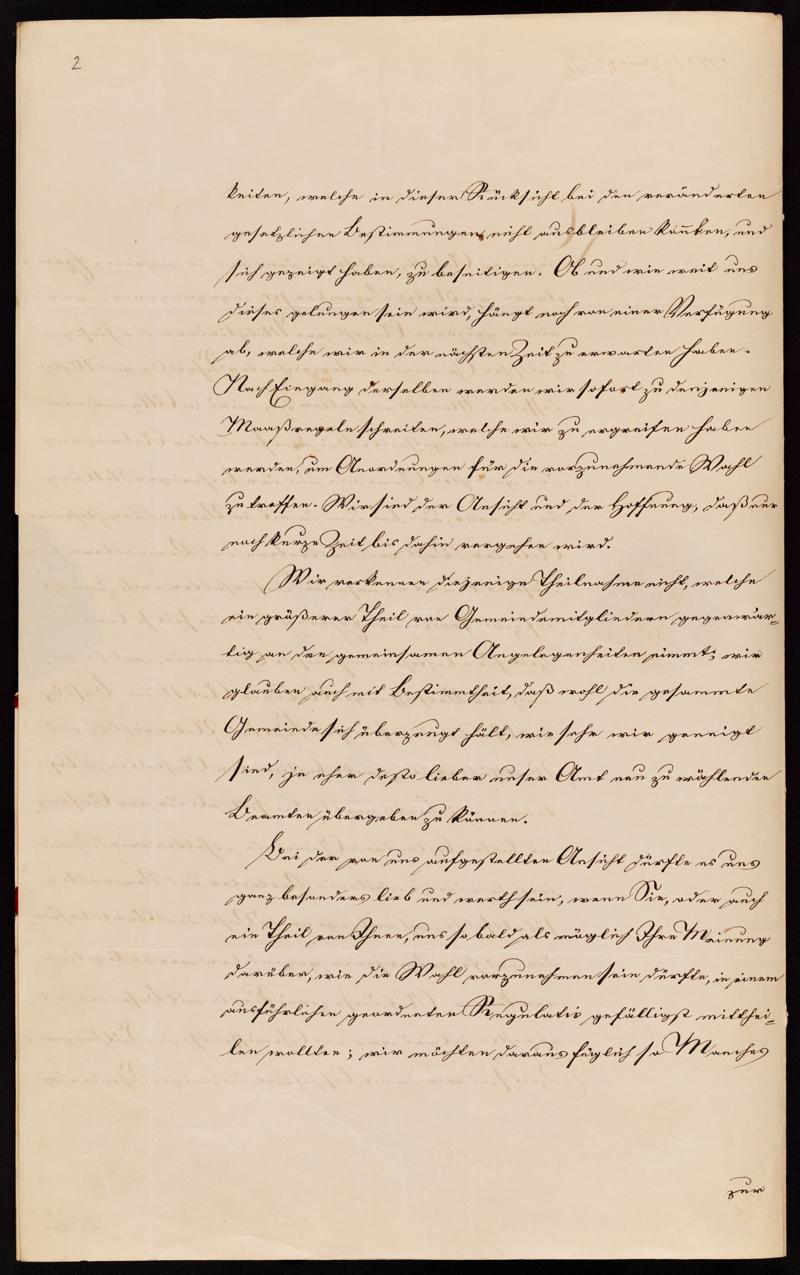 2
keiten, welche in dieser Rücksicht bei den veränderten
gesetzlichen Bestimmungen nicht ausbleiben kon̄ten, und
sich gezeigt haben, zu beseitigen. Ob und wie weit uns
dieses gelungen sein wird, hängt noch von einer Verfügung
ab, welche wir in der nächsten Zeit zu erwarten haben.
Nach Eingang derselben werden wir sofort zu denjenigen
Maaßregeln schreiten, welche wir zu ergreifen haben
werden, um Anordnungen für die vorzunehmende Wahl
zu treffen. Wir sind der Ansicht und der Hoffnung, daß nur
noch kurze Zeit bis dahin vergehen wird.
Wir verkennen diejenige Theilnahme nicht, welche
ein größerer Theil von Gemeindemitgliedern gegenwär=
tig an den gemeinsamen Angelegenheiten nimmt; wir
glauben auch mit Bestimmtheit, daß wohl die gesammte
Gemeinde sich überzeugt hält, wie sehr wir geneigt
sind, je eher desto lieber unser Amt neu zu wählenden
Beamten übergeben zu können.
Bei der von uns aufgestellten Ansicht dürfte es uns
ganz besonders lieb und werth sein, wenn Sie, oder auch
ein Theil von Ihnen, uns so bald als möglich Ihre Meinung
darüber, wie die Wahl vorzunehmen sein dürfte, in einem
ausführlichen geordneten Regulativ gefälligst mitthei=
len wollten; wir möchten daraus füglich so Manches
zur